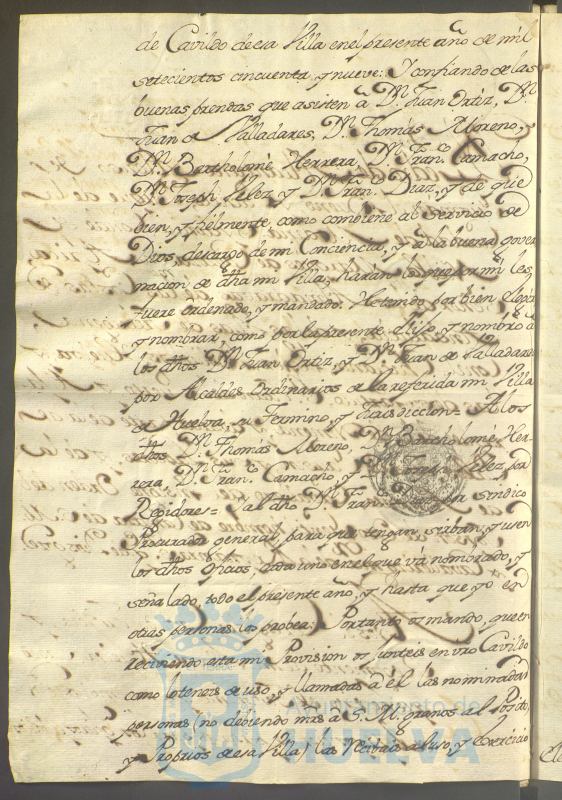 de Cavildo de esa Villa en el presente año de mil
setecientos cincuenta, y nueve: Y confiando de las
buenas prendas que asisten à Dn. Juan Ortiz, Dn.
Juan de Valladares, Dn. Thomàs Moreno,
Dn. Bartholomè Herrera, Dn. Franco. Camacho,
Dn. Joseph Velez, y Dn. Franco. Diaz, y de que
bien, y fielmente, como combiene al servicio de
Dios, descargo de mi Conciencia, y a la buena gover
nacion de dha mi Villa, haràn lo que por mi les
fuere ordenado, y mandado. He tenido por bien elegir
y nombrar, como por la presente elijo, y nombro à
los dhos Dn. Juan Ortiz, y Dn. Juan de Valladares
por Alcaldes Ordinarios de la referida mi Villa
de Huelva, su Termino, y Jurisdiccion= A los
dhos Dn. Thomàs Moreno, Dn. Bartholomè Her-
rera, Dn. Franco. Camacho, y Dn. Joseph Velez, por
Regidores= Y al dho Dn. Franco. Diaz por Sindico
Procurador general, para que tengan, sirban, y usen
los dhos oficios, cada uno en el que và nombrado, y
señalado, todo el presente año, y hasta que yo en
otras personas los probea: Portanto os mando, que en
reciviendo esta mi Provision os junteis en vro Cavildo
como lo teneis de uso, y llamadas à èl las nominadas
personas (no deviendo mrs à S. M. granos al Posito,
y Propios de esa Villa) las recivais al uso, y exercicio
HUELVA